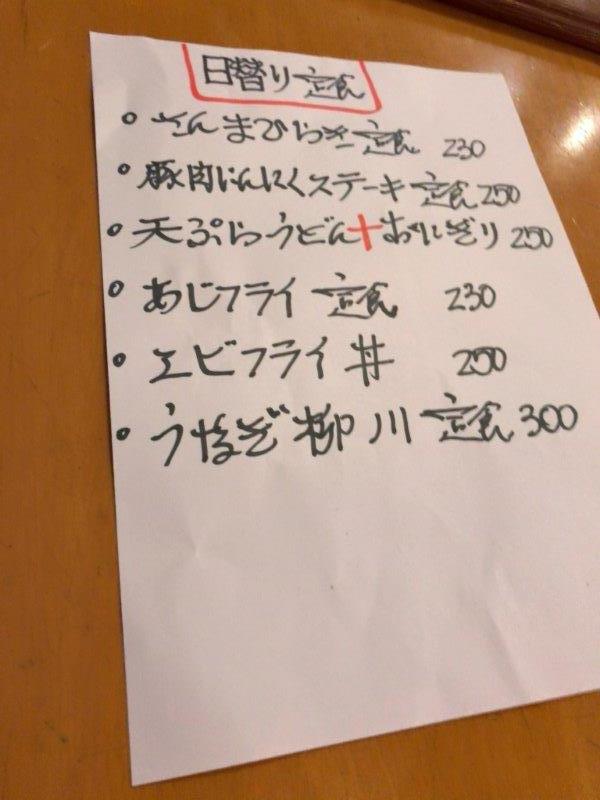 日替り定食
・さんまひらき定食 230
・豚肉にんにくステーキ定食 250
・天ぷらうどん+おにぎり 250
・あじフライ定食 230
・エビフライ丼 250
・うなぎ柳川定食 300